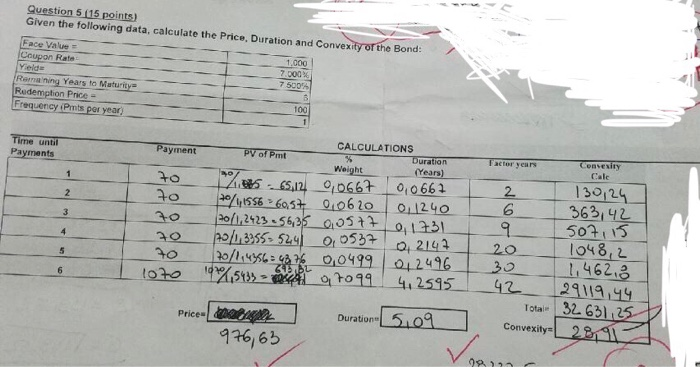 Question 5 (15 points)
Given the following data, calculate the Price, Duration and Convexity of the Bond:
Face Value = 1,000
Coupon Rate 7.000%
Yield= 7.500%
Remaining Years to Maturity=
Redemption Price = 100
Frequency (Pmts per year) 1
CALCULATIONS
Time until Payments Payment PV of Pmt % Weight Duration (Years) Factor years Convexity Calc
1 70 70/ = 65,12 0,0667 0,0667 2 130,24
2 70 70/1,1556 = 60,57 0,0620 0,1240 6 363,42
3 70 70/1,2423 = 56,35 0,0577 0,1731 9 507,15
4 70 70/1,3355= 52,41 0,0537 0,2147 20 1048,2
5 70 70/1,4356= 48,76 0,0499 0,2496 30 1,462,8
6 1070 1070/1,5433 = 693,32 0,7099 4,2595 42 29119,44
Total= 32 631,25
Price= Duration= 5,09 Convexity= 28,91
976,63